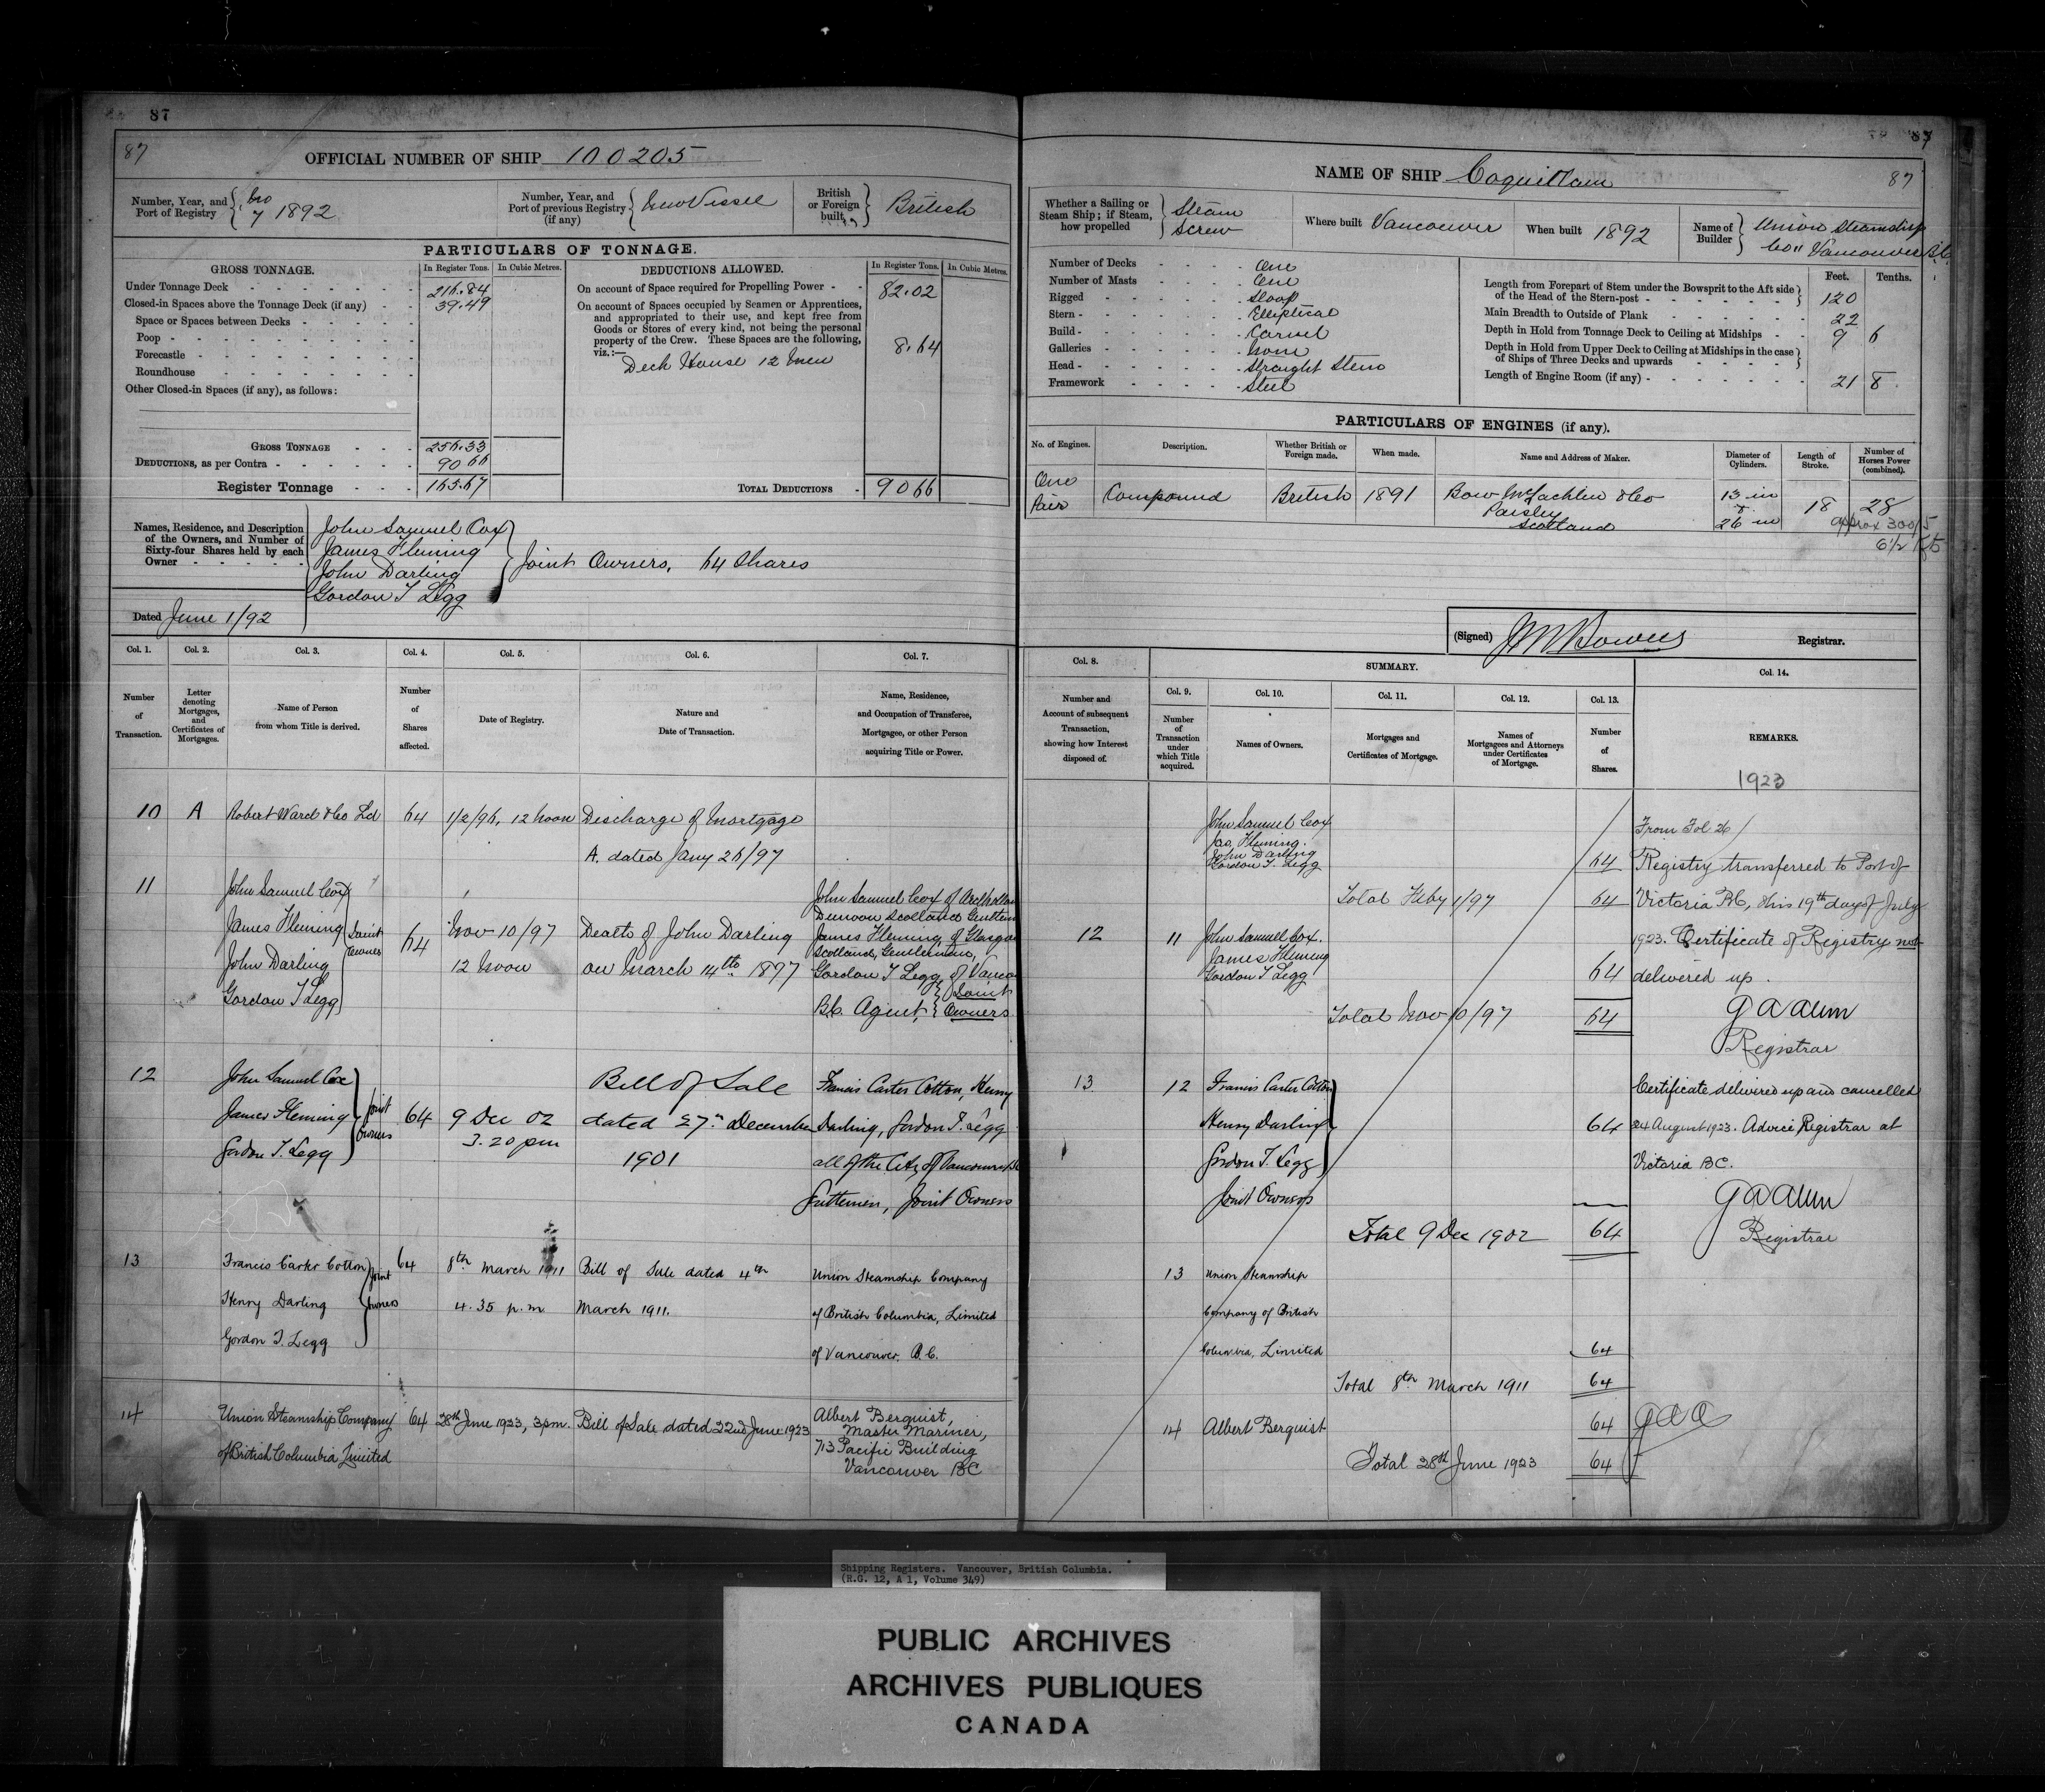 87
87
OFFICIAL NUMBER OF SHIP 100205
Number, Year, and Port of Registry
No 7 1892
Number, Year, and Port of previous Registry (if any)
New Vessel
British or Foreign built,
British
PARTICULARS OF TONNAGE.
GROSS TONNAGE.
In Register Tons.
In Cubic Metres.
DEDUCTIONS ALLOWED.
In Register Tons.
In Cubic Metres.
Under Tonnage Deck 216.84
Closed-in Spaces above the Tonnage Deck (if any) 39.49
Space or Spaces between Decks
Poop
Forecastle
Roundhouse
Other Closed-in Spaces (if any), as follows:
GROSS TONNAGE 256.33
DEDUCTIONS, as per Contra 90 66
Register Tonnage 165.67
On account of Space required for Propelling Power 82.02
On account of Spaces occupied by Seamen or Apprentices,
and appropriated to their use, and kept free from
Goods or Stores of every kind, not being the personal
property of the Crew. These Spaces are the following,
viz.:— 8.64
Deck House 12 men
TOTAL DEDUCTIONS 90 66
Names, Residence, and Description
of the Owners, and Number of
Sixty-four Shares held by each
Owner
John Samuel Cox
James Fleming
John Darling
Gordon T Legg
Joint Owners, 64 Shares
Dated June 1/92
Col. 1.
Number
of
Transaction.
Col. 2.
Letter
denoting
Mortgages,
and
Certificates of
Mortgages.
Col. 3.
Name of Person
from whom Title is derived.
Col. 4.
Number
of
Shares
affected.
Col. 5.
Date of Registry.
Col. 6.
Nature and
Date of Transaction.
Col. 7.
Name, Residence,
and Occupation of Transferee,
Mortgagee, or other Person
acquiring Title or Power.
10 A Robert Ward & Co Ld 64 1/2/96, 12 Noon Discharge of Mortgage
A. dated Jany 26/97
11
John Samuel Cox
James Fleming
John Darling
Gordon T Legg
Joint Owners
64
Nov 10/97
12 Noon
Death of John Darling
on March 14th 1897
John Samuel Cox of
Dunoon Scotland
James Fleming, of Glasgow
Scotland, Gentleman,
Gordon T Legg, of
BC. Agent, Joint Owners
12
John Samuel Cox
James Fleming
Gordon T. Legg
Joint Owners
64
9 Dec 02
3.20 pm
Bill of Sale
dated 27th December
1901
Francis Carter Cotton, Henry
Darling, Gordon T. Legg
all of the City of Vancouver BC
Gentlemen, Joint Owners
13
Francis Carter Cotton
Henry Darling
Gordon T. Legg
Joint owners
64
8th March 1911
4.35 p.m
Bill of Sale dated 4th
March 1911.
Union Steamship Company
of British Columbia, Limited
of Vancouver, B.C.
14
Union Steamship Company
of British Columbia Limited
64
28th June 1923, 3pm.
Bill of Sale dated 22nd June 1923
Albert Berquist,
Master Mariner,
713 Pacific Building
Vancouver BC
87
NAME OF SHIP Coquitlam
87
Whether a Sailing or
Steam Ship; if Steam,
how propelled
Steam
Screw
Where built Vancouver
When built 1892
Name of Builder
Union Steamship
Co" Vancouver B.C.
Number of Decks One
Number of Masts One
Rigged Sloop
Stern Elliptical
Build Carvel
Galleries None
Head Straight Stem
Framework Steel
Feet. Tenths.
Length from Forepart of Stem under the Bowsprit to the Aft side
of the Head of the Stern-post 120
Main Breadth to Outside of Plank 22
Depth in Hold from Tonnage Deck to Ceiling at Midships 9 6
Depth in Hold from Upper Deck to Ceiling at Midships in the case
of Ships of Three Decks and upwards
Length of Engine Room (if any) 21 8
PARTICULARS OF ENGINES (if any).
No. of Engines.
Description.
Whether British or
Foreign made.
When made.
Name and Address of Maker.
Diameter of
Cylinders.
Length of
Stroke.
Number of
Horses Power
(combined).
One Pair
Compound
British
1891
Bow McLachlin & Co
Paisley
Scotland
13 in
&
26 in
18
28
approx 300
6 1/2 Kts
(Signed) Registrar.
Col. 8.
Number and
Account of subsequent
Transaction,
showing how Interest
disposed of.
SUMMARY.
Col. 9.
Number
of
Transaction
under
which Title
acquired.
Col. 10.
Names of Owners.
Col. 11.
Mortgages and
Certificates of Mortgage.
Col. 12.
Names of
Mortgagees and Attorneys
under Certificates
of Mortgage.
Col. 13.
Number
of
Shares.
Col. 14.
REMARKS.
1923
John Samuel Cox
Jas, Fleming.
John Darling
Gordon T. Legg
64
Total Feby 1/97 64
12
11
John Samuel Cox.
James Fleming
Gordon T Legg
64
Total Nov 10/97 64
13
12
Francis Carter Cotton
Henry Darling
Gordon T. Legg
Joint Owners
64
Total 9 Dec 1902 64
13
Union Steamship
Company of British
Columbia, Limited
64
Total 8th March 1911 64
14 Albert Berquist 64
Total 28th June 1923 64
From Fol 26
Registry transferred to Port of
Victoria BC, this 19th day of July
1923. Certificate of Registry not
delivered up.
Registrar
Certificate delivered up and cancelled
24 August 1923. Advice Registrar at
Victoria BC.
Registrar
Shipping Registers. Vancouver, British Columbia.
(R.G. 12, A 1, Volume 349)
PUBLIC ARCHIVES
ARCHIVES PUBLIQUES
CANADA